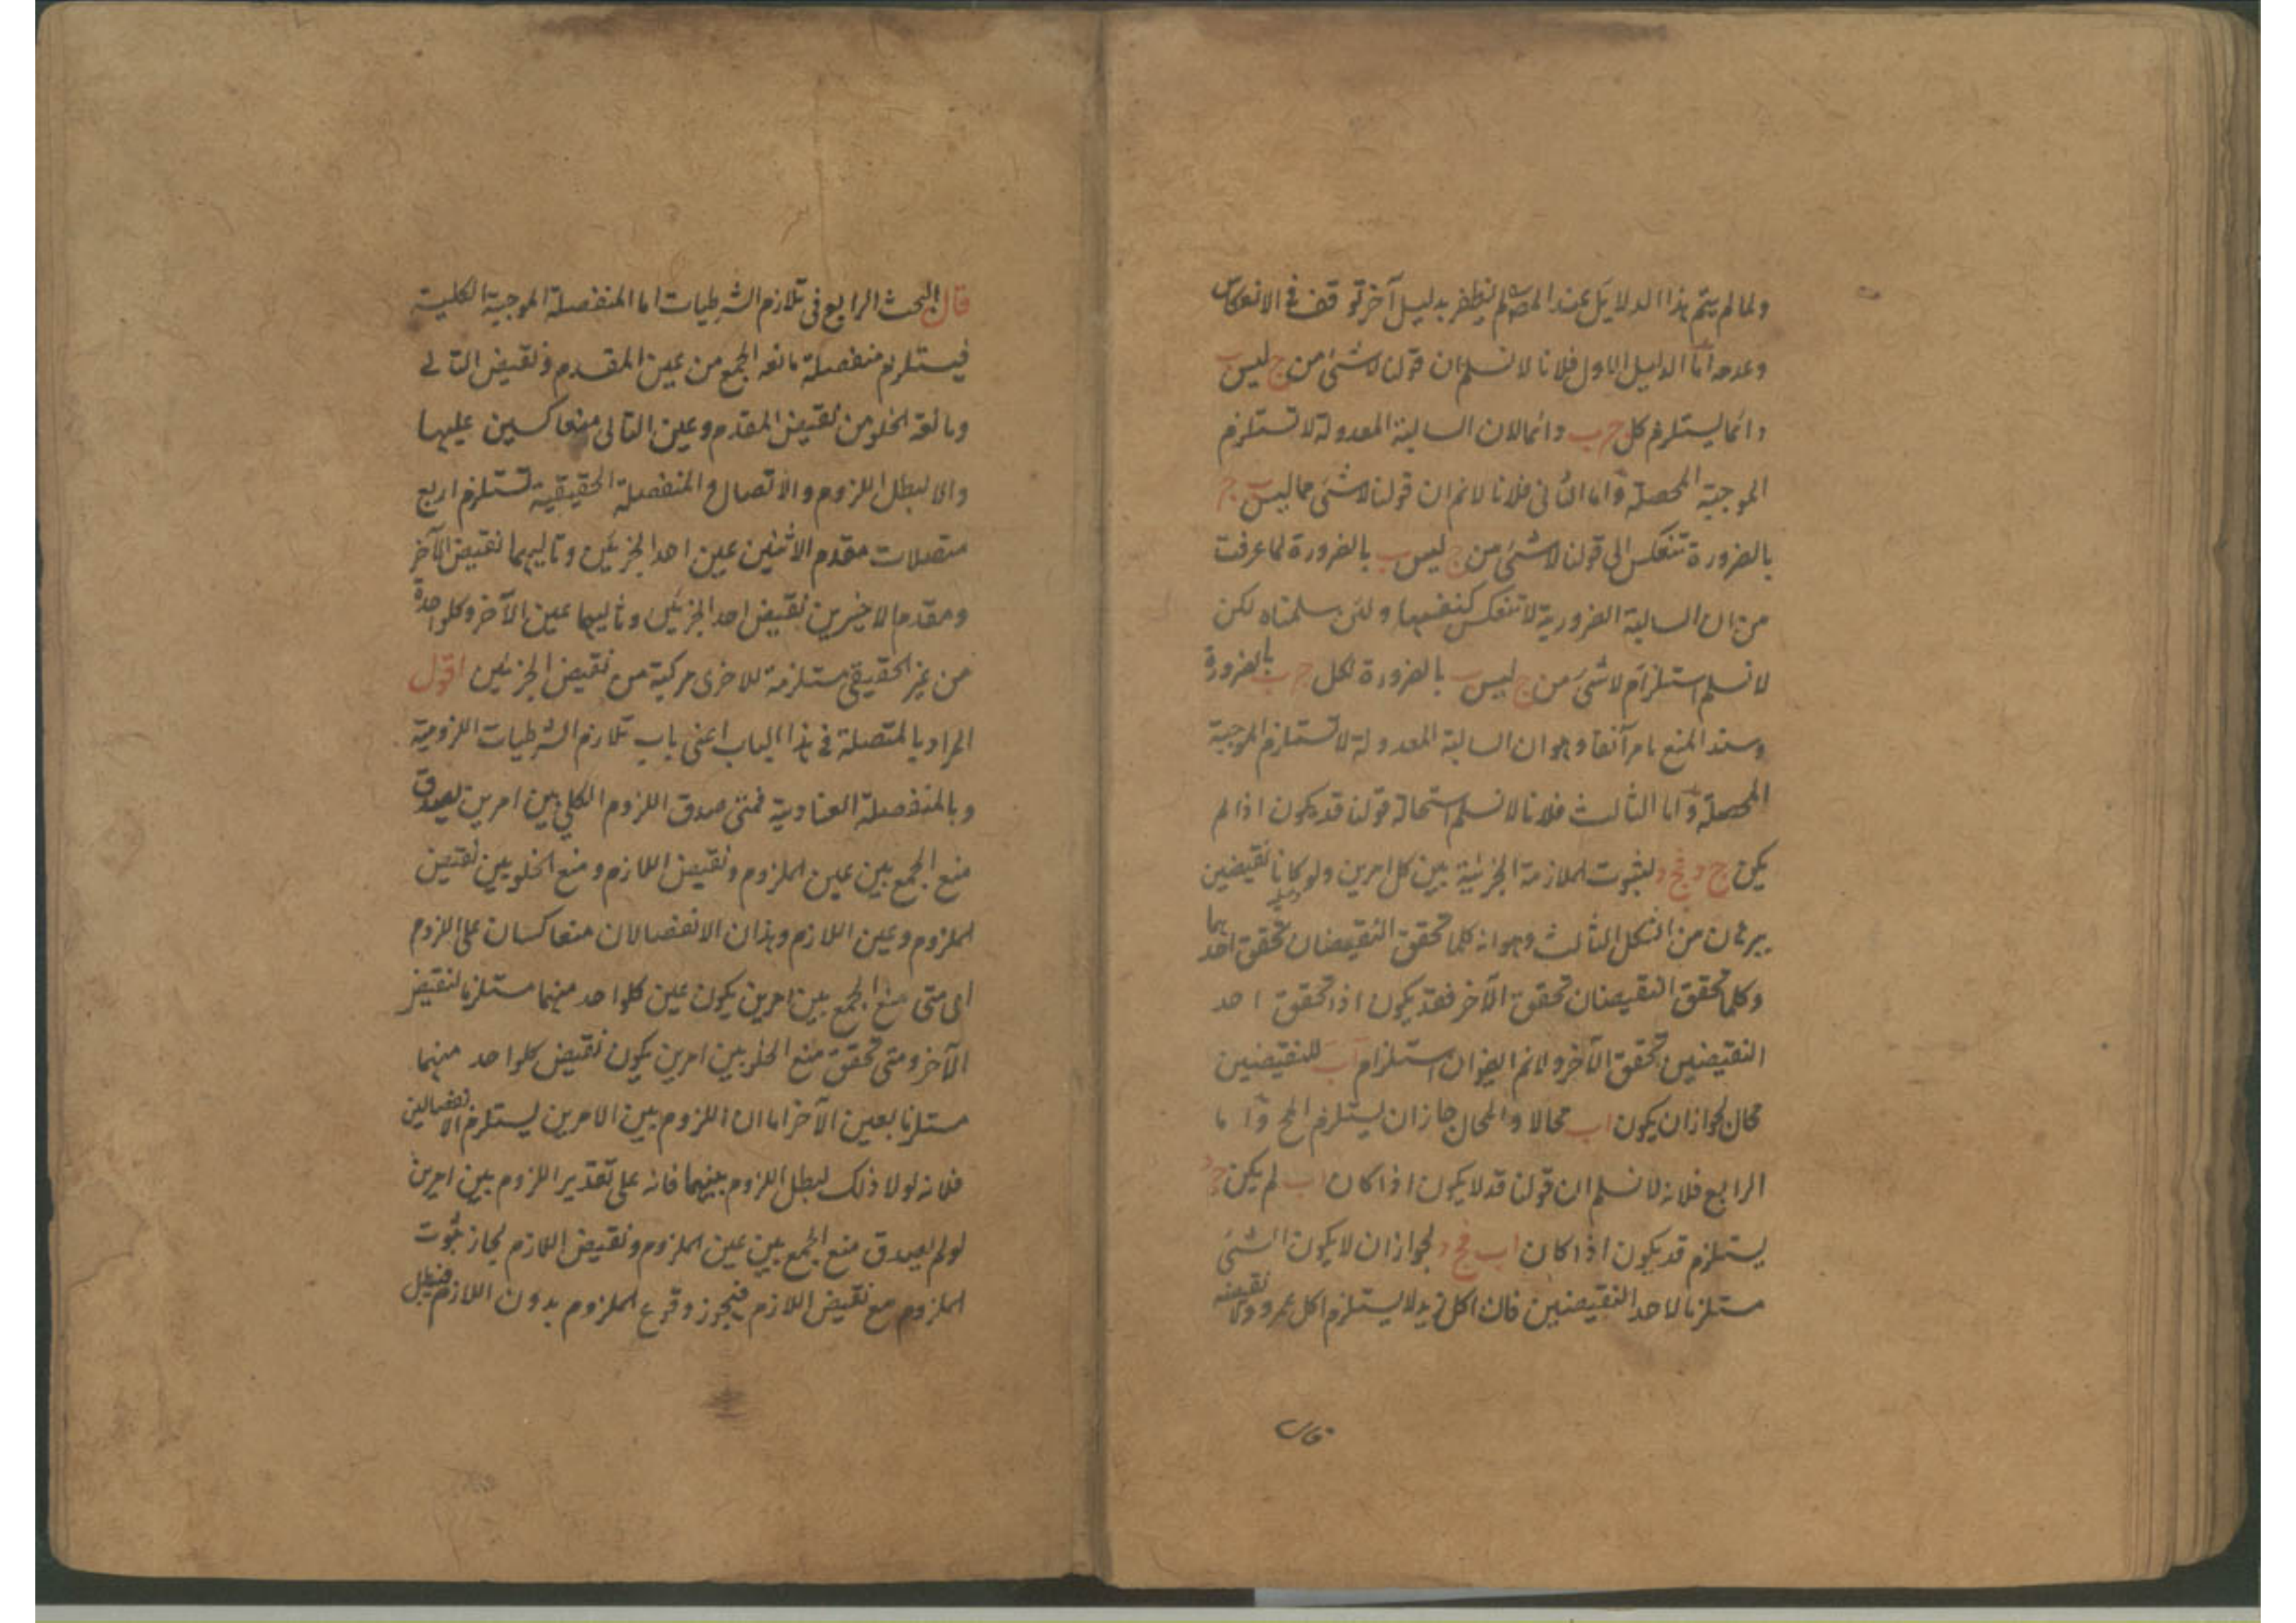 ولما لم يتم هذا الدلايل عند المصم ولم يظفر بدليل آخر توقف في الانعكاس
وعدمه أما الدليل الاول فلانا لا نسلم ان قولنا لا شئ من ج ليس ب
دائما يستلزم كل ج ب دائما لان السالبة المعدولة لا تستلزم
الموجبة المحصلة وأما الثاني فلانا لانم ان قولنا لا شئ مما ليس ب ج
بالضرورة تنعكس الى قولنا لا شئ من ج ليس ب بالضرورة لما عرفت
من ان السالبة الضرورية لا تنعكس كنفسها ولئن سلمناه لكن
لا نسلم استلزام لا شئ من ج ليس ب بالضرورة لكل ج ب بالضرورة
وسند المنع ما مر آنفا وهو ان السالبة المعدولة لا تستلزم الموجبة
المحصلة وأما الثالث فلانا لا نسلم استحالة قولنا قد يكون اذا لم
يكن ج د فج د لثبوت الملازمة الجزئية بين كل امرين ولو كانا نقيضين
ببرهان من الشكل الثالث وهو انه كلما تحقق النقيضان تحقق احدهما
وكلما تحقق النقيضان تحقق الآخر فقد يكون اذا تحقق احد
النقيضين تحقق الآخر ولانم ايضا ان استلزام اب للنقيضين
محال لجواز ان يكون اب محالا والمحال جاز ان يستلزم المح وأما
الرابع فلانه لا نسلم ان قولنا قد لا يكون اذا كان اب لم يكن ج د
يستلزم قد يكون اذا كان اب فج د لجواز ان لا يكون الشئ
مستلزما لاحد النقيضين فان اكل زيد لا يستلزم اكل عمرو ولا نقيضه
قال البحث الرابع في تلازم الشرطيات اما المنفصلة الموجبة الكلية
فيستلزم منفصلة مانعه الجمع من عين المقدم ونقيض التالي
ومانعة الخلو من نقيض المقدم وعين التالى متعاكسين عليها
والا لبطل اللزوم والاتصال والمنفصلة الحقيقية تستلزم اربع
متصلات مقدم الاثنين عين احد الجزئين وتاليهما نقيض الآخر
ومقدم الاخيرين نقيض احد الجزئين وتاليهما عين الآخر وكلواحدة
من غير الحقيقي مستلزمة للاخرى مركبة من نقيض الجزئين اقول
المراد بالمتصلة في هذا الباب اعنى باب تلازم الشرطيات اللزومية
وبالمنفصلة العنادية فمتى صدق اللزوم الكلي بين امرين يصدق
منع الجمع بين عين الملزوم ونقيض اللازم ومنع الخلو بين نقيض
الملزوم وعين اللازم وهذان الانفصالان متعاكسان على اللزوم
اى متى منع الجمع بين امرين يكون عين كلواحد منهما مستلزما لنقيض
الآخر ومتى تحقق منع الخلو بين امرين يكون نقيض كلواحد منهما
مستلزما بعين الآخر اما ان اللزوم بين الامرين يستلزم الانفصالين
فلانه لولا ذلك لبطل اللزوم بينهما فانه على تقدير اللزوم بين امرين
لو لم يصدق منع الجمع بين عين الملزوم ونقيض اللازم لجاز ثبوت
الملزوم مع نقيض اللازم فيجوز وقوع الملزوم بدون اللازم فيبطل